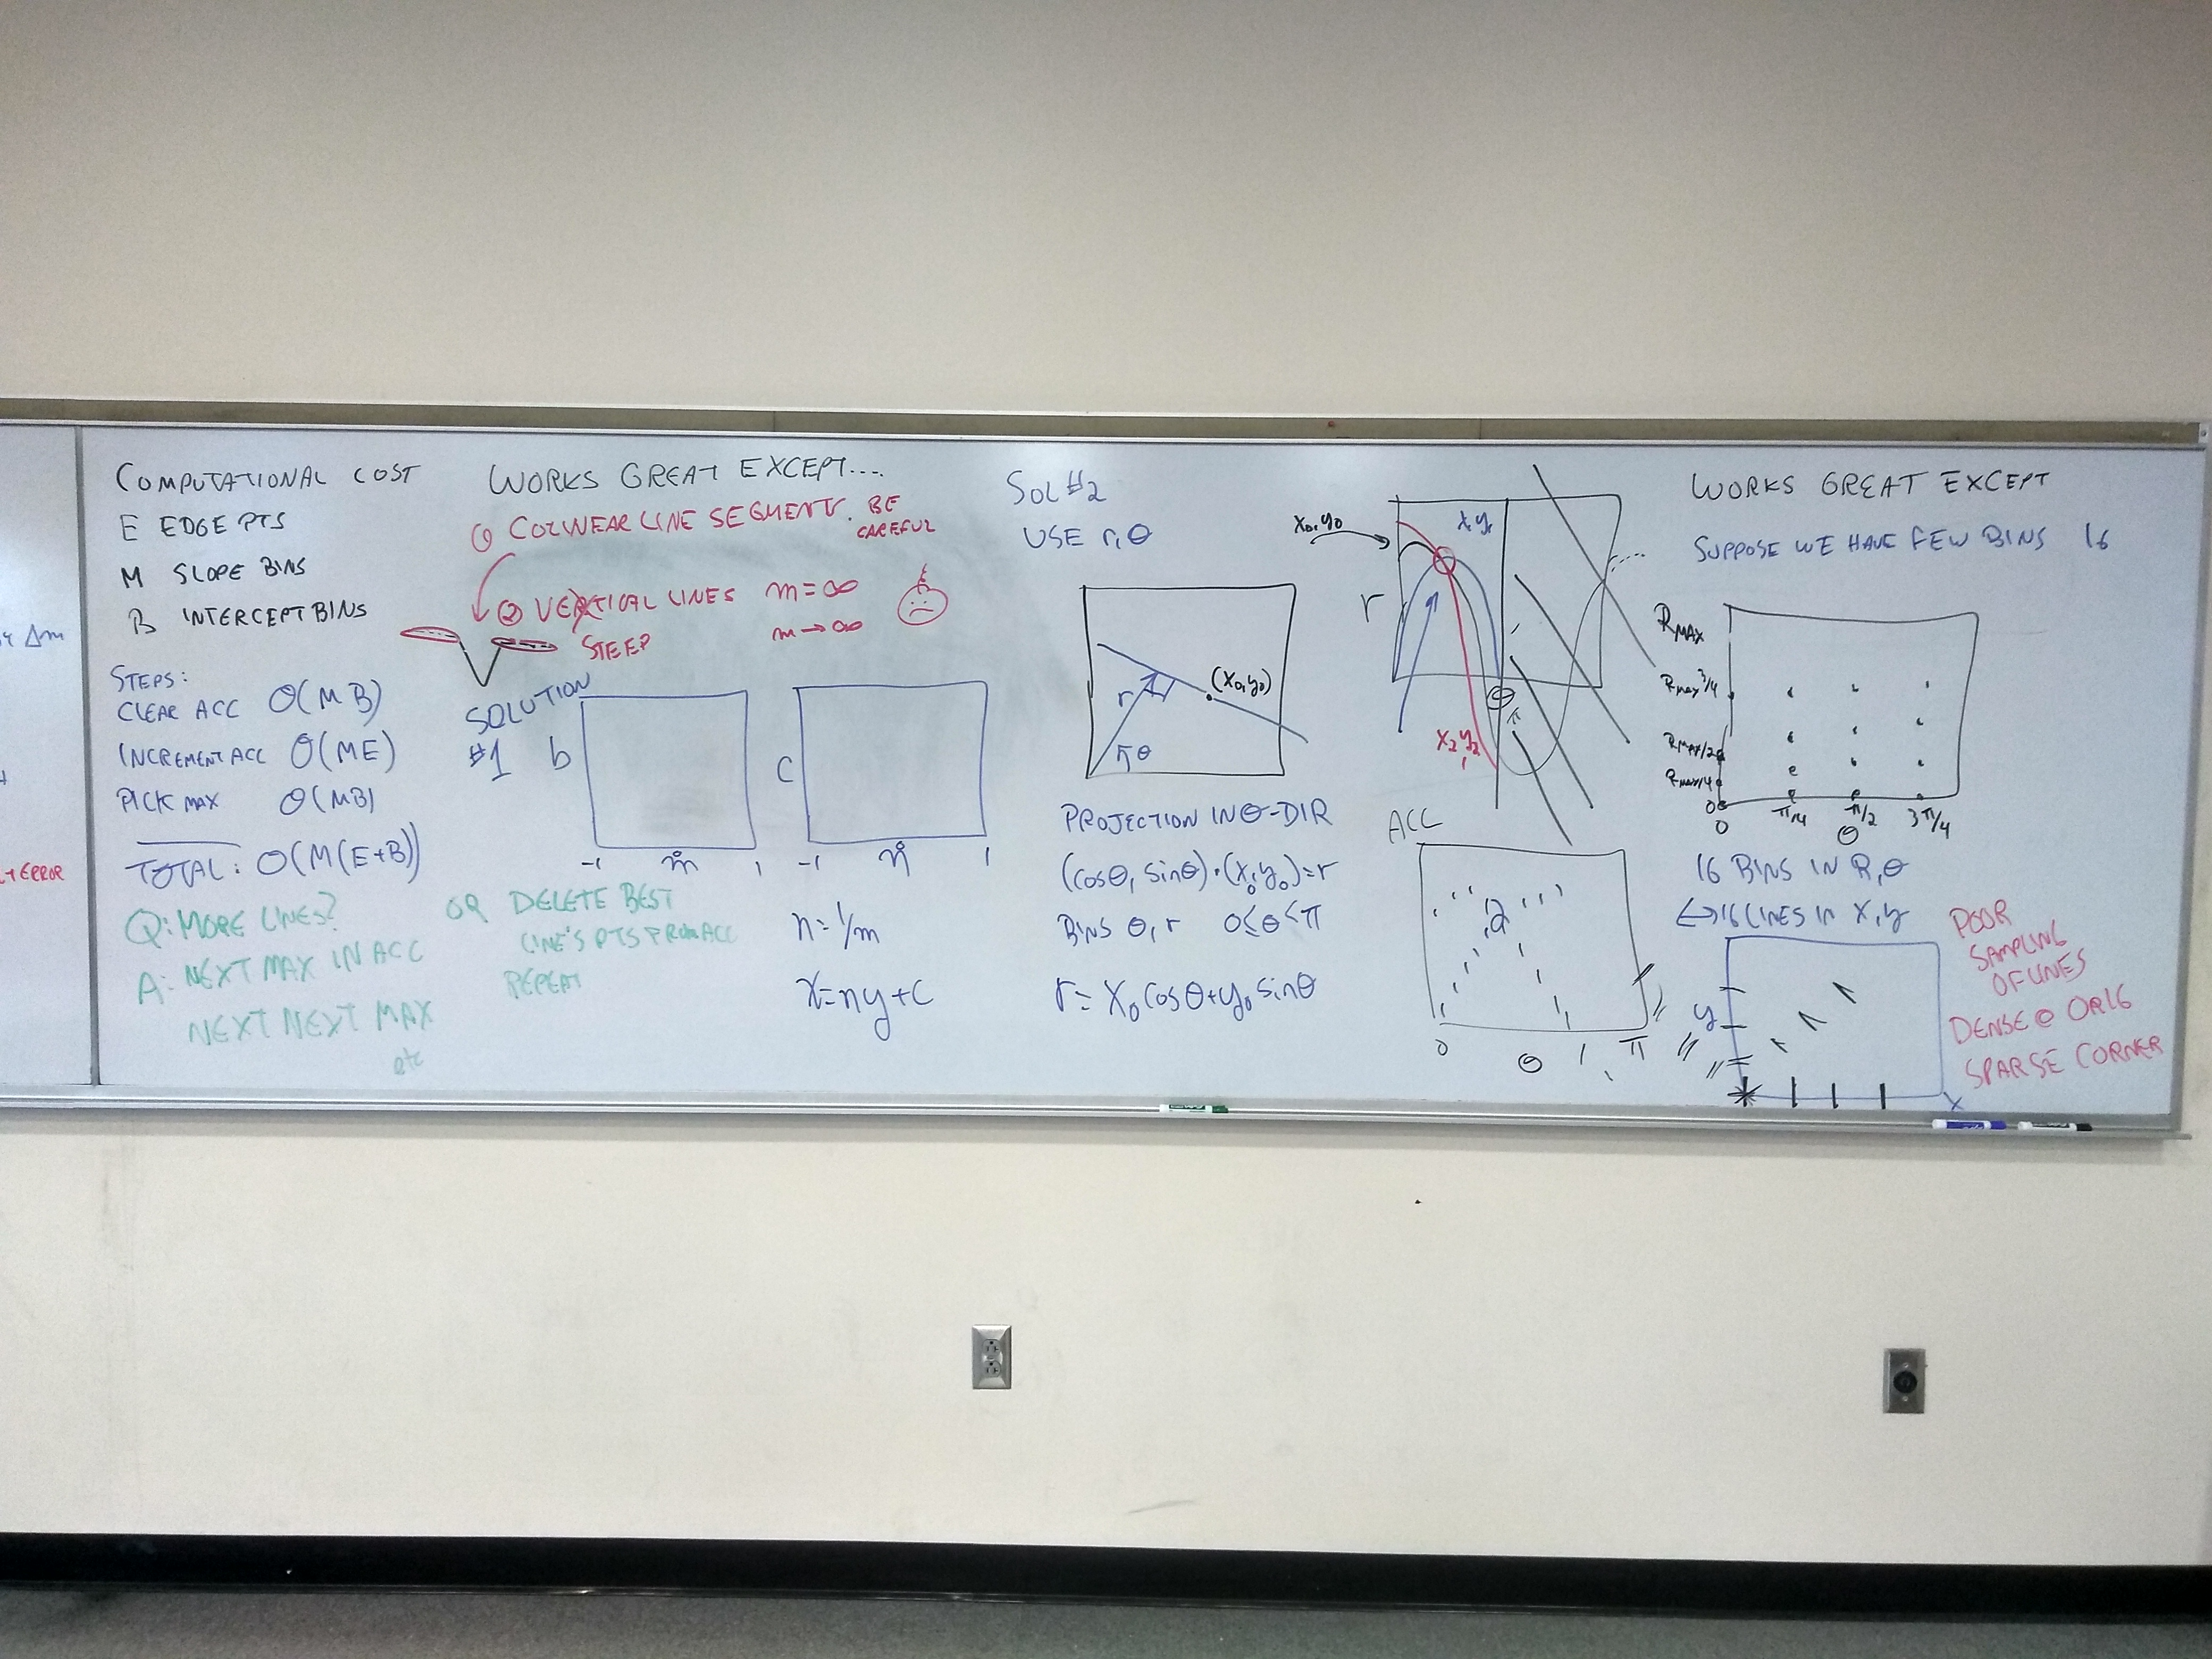 Δm
ERROR
COMPUTATIONAL COST
E EDGE PTS
M SLOPE BINS
B INTERCEPT BINS
STEPS:
CLEAR ACC O(MB)
INCREMENT ACC O(ME)
PICK MAX O(MB)
TOTAL: O(M(E+B))
Q: MORE LINES?
A: NEXT MAX IN ACC
NEXT NEXT MAX
etc
OR DELETE BEST
LINE'S PTS FROM ACC
REPEAT
WORKS GREAT EXCEPT....
① COLINEAR LINE SEGMENTS. BE
CAREFUL
② VERTICAL LINES m=∞
STEEP m→∞
SOLUTION
#1
b
-1 m 1
c
-1 n 1
n=1/m
x=ny+c
SOL #2
USE r,θ
r
θ
(x0,y0)
PROJECTION IN θ-DIR
(cosθ, sinθ)·(x0,y0)=r
BINS θ,r 0≤θ≤π
r= x0 cosθ+y0 sinθ
x0,y0
x1y1
r
π
x2y2
ACC
2
0 θ π
WORKS GREAT EXCEPT
SUPPOSE WE HAVE FEW BINS 16
RMAX
Rmax 3/4
RMAX/2
Rmax/4
0
0 π/4 π/2 3π/4
θ
16 BINS IN R,θ
↔16 LINES IN X,Y
y
x
POOR
SAMPLING
OF LINES
DENSE @ ORIG
SPARSE CORNER